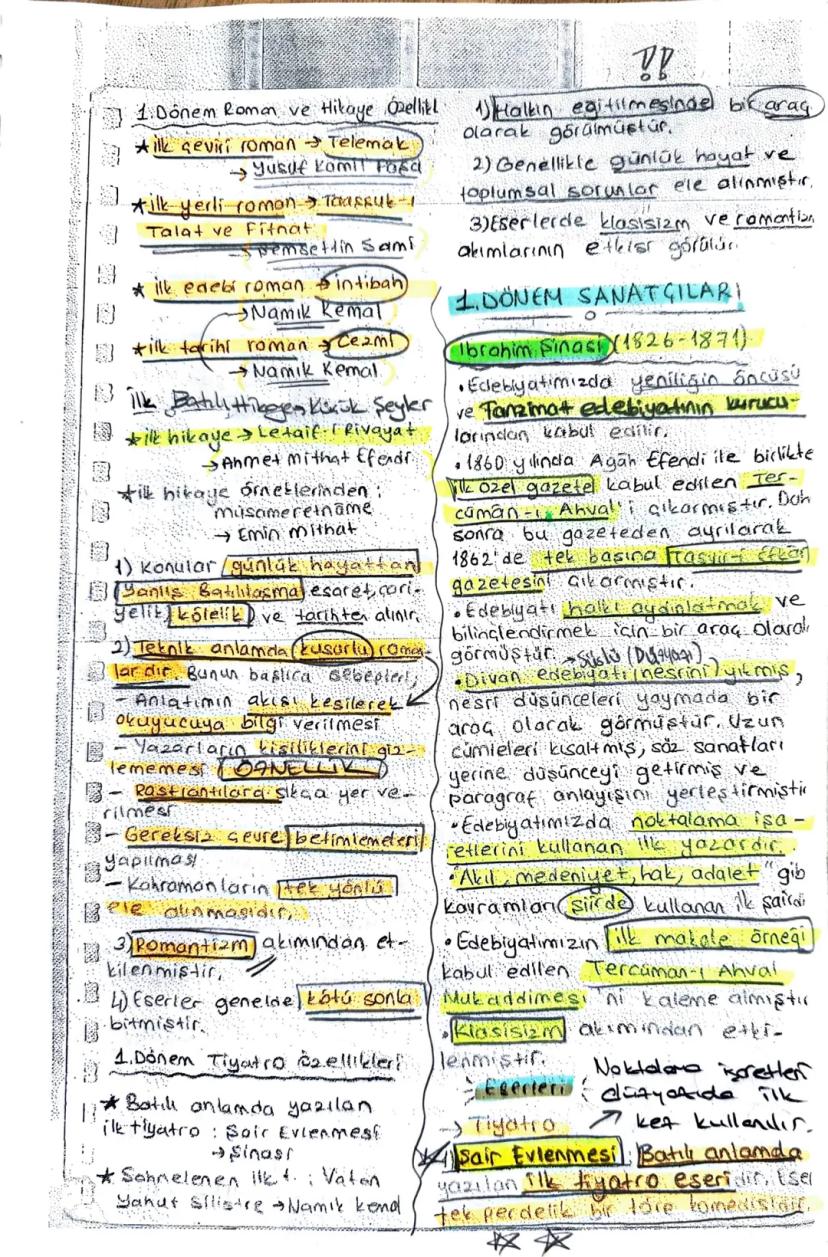 1.Dönem Roman ve Hikaye Özellikl
★ilk çeviri roman → Telemak
→ Yusuf Kamil Paşa
★ilk yerli roman → Taaşşuk-ı
Talat ve Fitnat
Şemsettin Sami
★ ilk edebi roman → intibah
→ Namık Kemal
★ilk tarihi roman → Cezmi
→ Namık Kemal
ilk Batılı Hikaye Küçük Şeyler
★ilk hikaye → Letaif-i Rivayat
→ Ahmet Mithat Efendi
★ilk hikaye örneklerinden :
müsameretnâme
→ Emin Mithat
1) Konular günlük hayattan
Yanlış Batılılaşma esaret, cari-
yelik, kölelik ve tarihten alınır.
2) Teknik anlamda kusurlu roman-
lardır. Bunun başlıca sebepleri;
- Anlatımın akışı kesilerek
okuyucuya bilgi verilmesi
- Yazarların kişiliklerini giz-
lememesi ÖZNELLİK
- Rastlantılara sıkça yer ve-
rilmesi
- Gereksiz çevre betimlemeleri
yapılması
- Kahramanların tek yönlü
ele alınmasıdır.
3) Romantizm akımından et-
kilenmiştir.
4) Eserler genelde kötü sonla
bitmiştir.
1.Dönem Tiyatro özellikleri
★ Batılı anlamda yazılan
ilk tiyatro : Şair Evlenmesi
→ Şinasi
★ Sahnelenen ilk t. : Vatan
Yahut Silistre → Namık Kemal
!!
1) Halkın eğitilmesinde bir araç
olarak görülmüştür.
2) Genellikle günlük hayat ve
toplumsal sorunlar ele alınmıştır.
3)Eserlerde klasisizm ve romantizm
akımlarının etkisi görülür.
1.DÖNEM SANATÇILARI
İbrahim Şinasi (1826-1871)
• Edebiyatımızda yeniliğin öncüsü
ve Tanzimat edebiyatının kurucu-
larından kabul edilir.
• 1860 yılında Agâh Efendi ile birlikte
ilk özel gazete kabul edilen Ter-
cümân-ı Ahval'i çıkarmıştır. Dah
sonra bu gazeteden ayrılarak
1862'de tek başına Tasvir-i Efkâr
gazetesini çıkarmıştır.
• Edebiyatı halkı aydınlatmak ve
bilinçlendirmek için bir araç olarak
görmüştür. → Süslü (Düzyazı)
• Divan edebiyatı (nesrini) yıkmış,
nesri düşünceleri yaymada bir
araç olarak görmüştür. Uzun
cümleleri kısaltmış, söz sanatları
yerine düşünceyi getirmiş ve
paragraf anlayışını yerleştirmiştir
• Edebiyatımızda noktalama işa-
retlerini kullanan ilk yazardır.
• Akıl, medeniyet, hak, adalet" gib
kavramları şiirde kullanan ilk şairdi
• Edebiyatımızın ilk makale örneği
kabul edilen Tercüman-ı Ahval
Mukaddimesi 'ni kaleme almıştır
• Klasisizm akımından etki-
lenmiştir.
Eserleri
Noktalama işaretleri
düzyazıda ilk
kez kullanılır.
→ Tiyatro
1) Şair Evlenmesi : Batılı anlamda
yazılan ilk tiyatro eseridir. Eser
tek perdelik bir töre komedisidir.